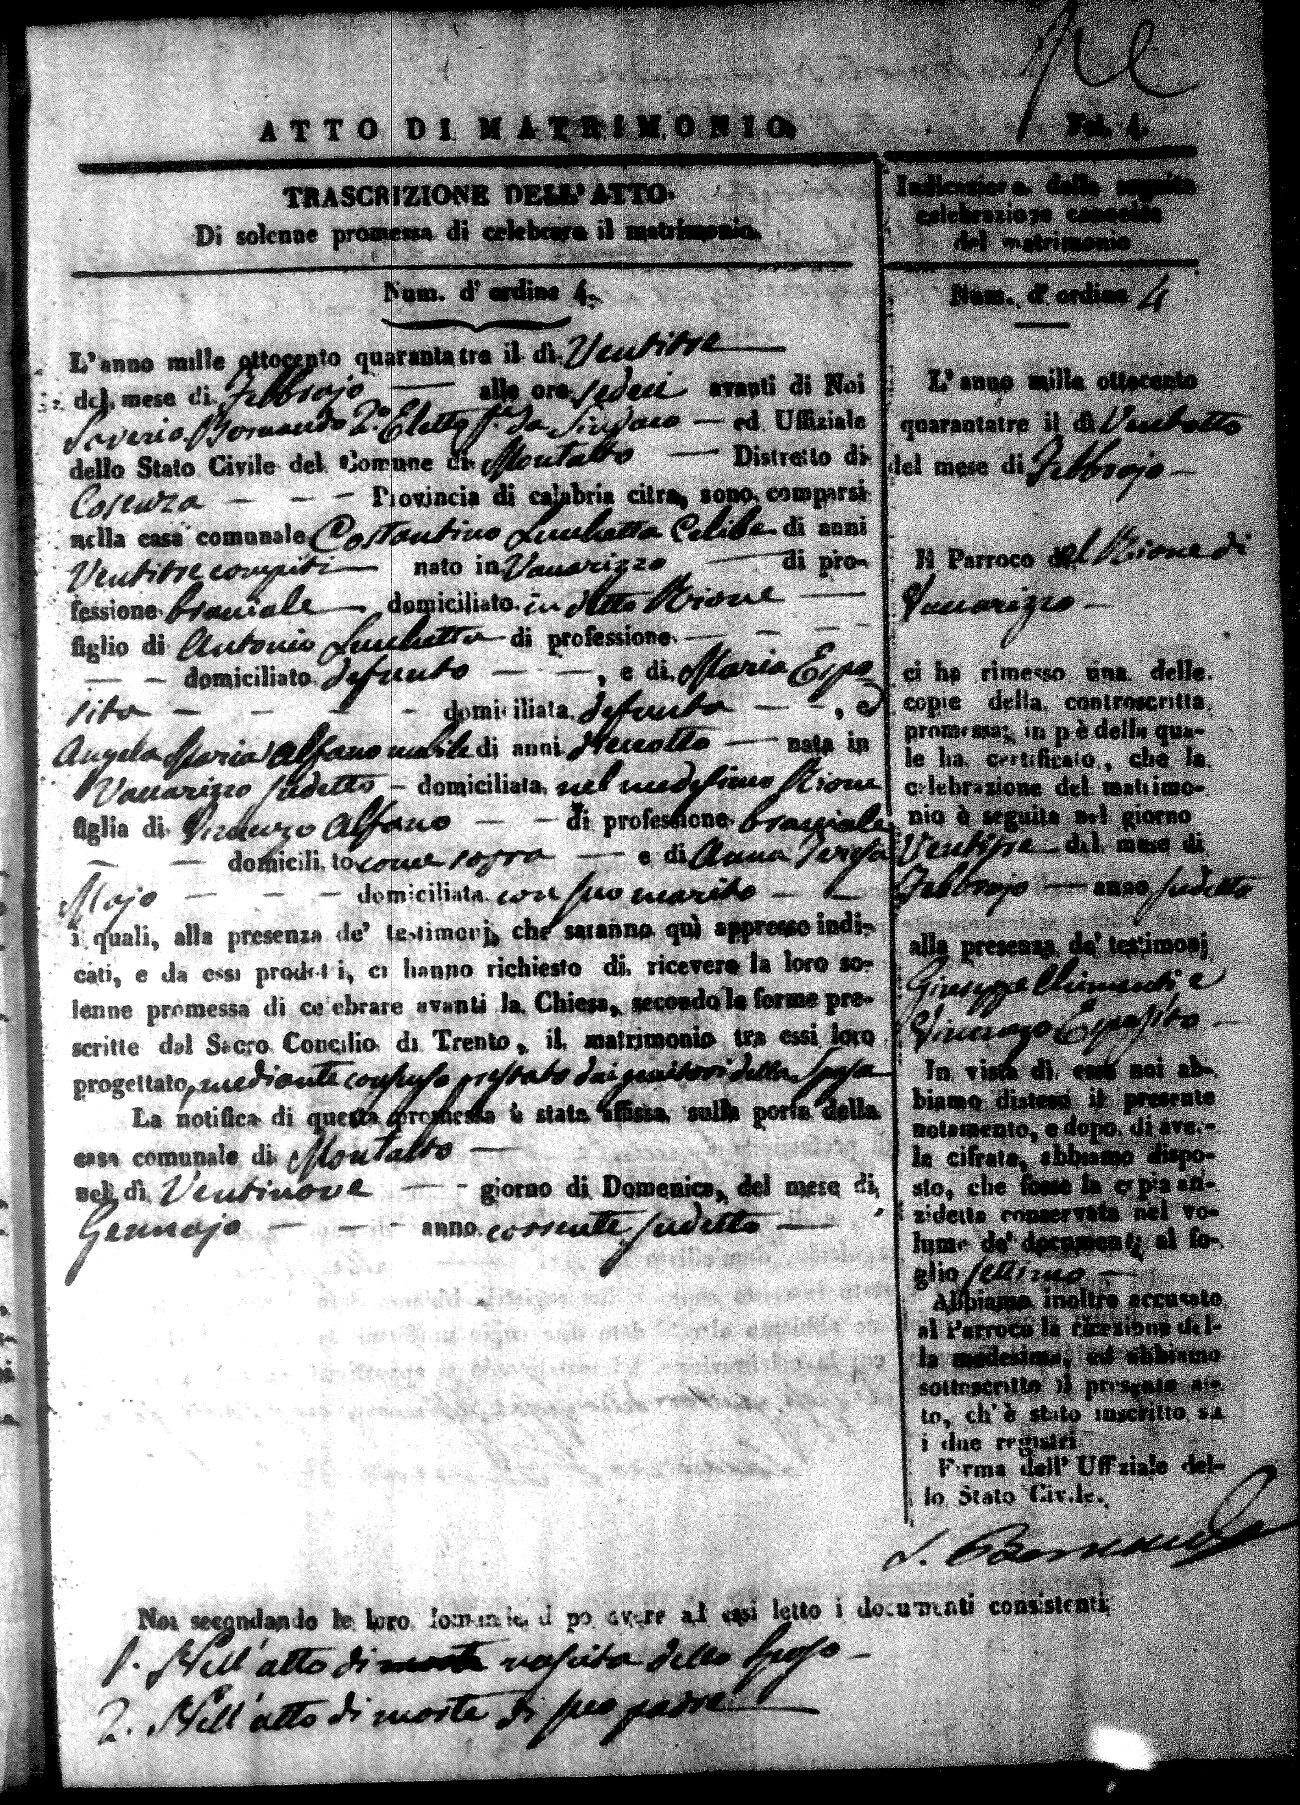 ATTO DI MATRIMONIO
Fol. 4.
TRASCRIZIONE DELL' ATTO.
Di solenne promessa di celebrare il matrimonio.
Num. d' ordine 4.
L'anno mille ottocento quarantatre il dì Ventitre
del mese di Febbrajo alle ore sedeci avanti di Noi
Saverio Bornando 2.° Eletto f. da Sindaco ed Uffiziale
dello Stato Civile del Comune di Montalto Distretto di
Cosenza Provincia di calabria citra, sono comparsi
nella casa comunale Costantino Luchetta Celibe di anni
Ventitre compiti nato in Vaccarizzo di pro-
fessione bracciale domiciliato in detto Rione
figlio di Antonio Luchetta di professione
domiciliato defunto , e di Maria Espo
sito domiciliata defunta , e
Angela Maria Alfano nubile di anni dieciotto nata in
Vaccarizzo sudetto domiciliata nel medesimo Rione
figlia di Vincenzo Alfano di professione bracciale
domiciliato come sopra e di Anna Teresa
Majo domiciliata con suo marito
i quali, alla presenza de' testimonj, che saranno quì appresso indi-
cati, e da essi prodotti, ci hanno richiesto di ricevere la loro so-
lenne promessa di celebrare avanti la Chiesa, secondo le forme pre-
scritte dal Sacro Concilio di Trento, il matrimonio tra essi loro
progettato, mediante consenso prestato dai genitori della Sposa
La notifica di questa promessa è stata affissa sulla porta della
casa comunale di Montalto
nel dì Ventinove giorno di Domenica, del mese di
Gennajo anno corrente sudetto
Indicazione della seguita
celebrazione canonica
del matrimonio
Num. d' ordine 4
L' anno mille ottocento
quarantatre il dì Ventotto
del mese di Febbrajo
Il Parroco del Rione di
Vaccarizzo
ci ha rimesso una delle
copie della controscritta
promessa; in piè della qua-
le ha certificato, che la
celebrazione del matrimo-
nio è seguita nel giorno
Ventitre del mese di
Febbrajo anno sudetto
alla presenza de' testimonj
Giuseppe Chimenti e
Vincenzo Esposito
In vista di essa noi ab-
biamo disteso il presente
notamento, e dopo di aver-
la cifrata, abbiamo dispo-
sto, che fosse la copia an-
zidetta conservata nel vo-
lume de' documenti al fo-
glio settimo
Abbiamo inoltre accusato
al Parroco la ricezione del-
la medesima, ed abbiamo
sottoscritto il presente at-
to, ch' è stato inscritto su
i due registri
Firma dell' Uffiziale del-
lo Stato Civile.
S. Bornando
Noi secondando le loro domande, dopo avere ad essi letto i documenti consistenti
1. Nell' atto di nascita dello Sposo
2. Nell' atto di morte di suo padre